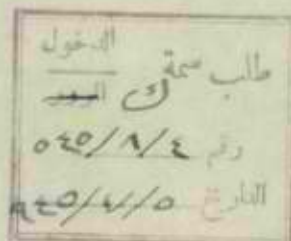 الدخول
طلب سمة ك
رقم ٥٤٥/٨/٤
التاريخ ٩٤٥/٤/٥